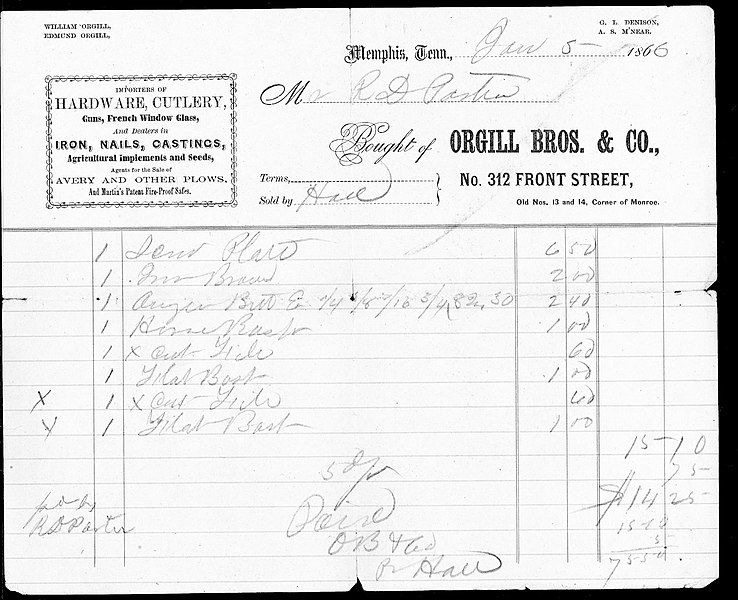 WILLIAM ORGILL,
EDMUND ORGILL,
G. L. DENISON,
A. S. M'NEAR.
Memphis, Tenn., Jan 5 1866
IMPORTERS OF
HARDWARE, CUTLERY,
Guns, French Window Glass,
And Dealers in
IRON, NAILS, CASTINGS,
Agricultural Implements and Seeds,
Agents for the Sale of
AVERY AND OTHER PLOWS,
And Martin's Patent Fire-Proof Safes.
Mr R D Porter
Bought of ORGILL BROS. & CO.,
No. 312 FRONT STREET,
Old Nos. 13 and 14, Corner of Monroe.
Terms,
Sold by Hall
1 Plate 6 50
1 Brace 2 00
1 Auger Bitt 1/4 7/16 3/4 2 40
1 Horse Rasp 1 00
1 x Cut File 60
1 Flat Bast 1 00
X 1 x Cut File 60
X 1 Flat Bast 1 00
15 10
5 75
$14 25
Paid
O B & Co
Pr Hall
R D Porter
15 10
5
75 50